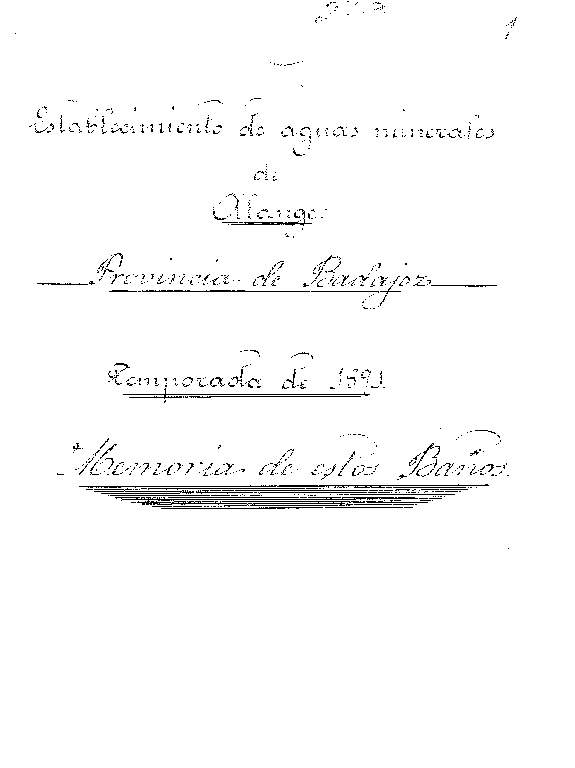 1
Establecimiento de aguas minerales
de
Alange
Provincia de Badajoz
Temporada de 1891
Memoria de estos Baños